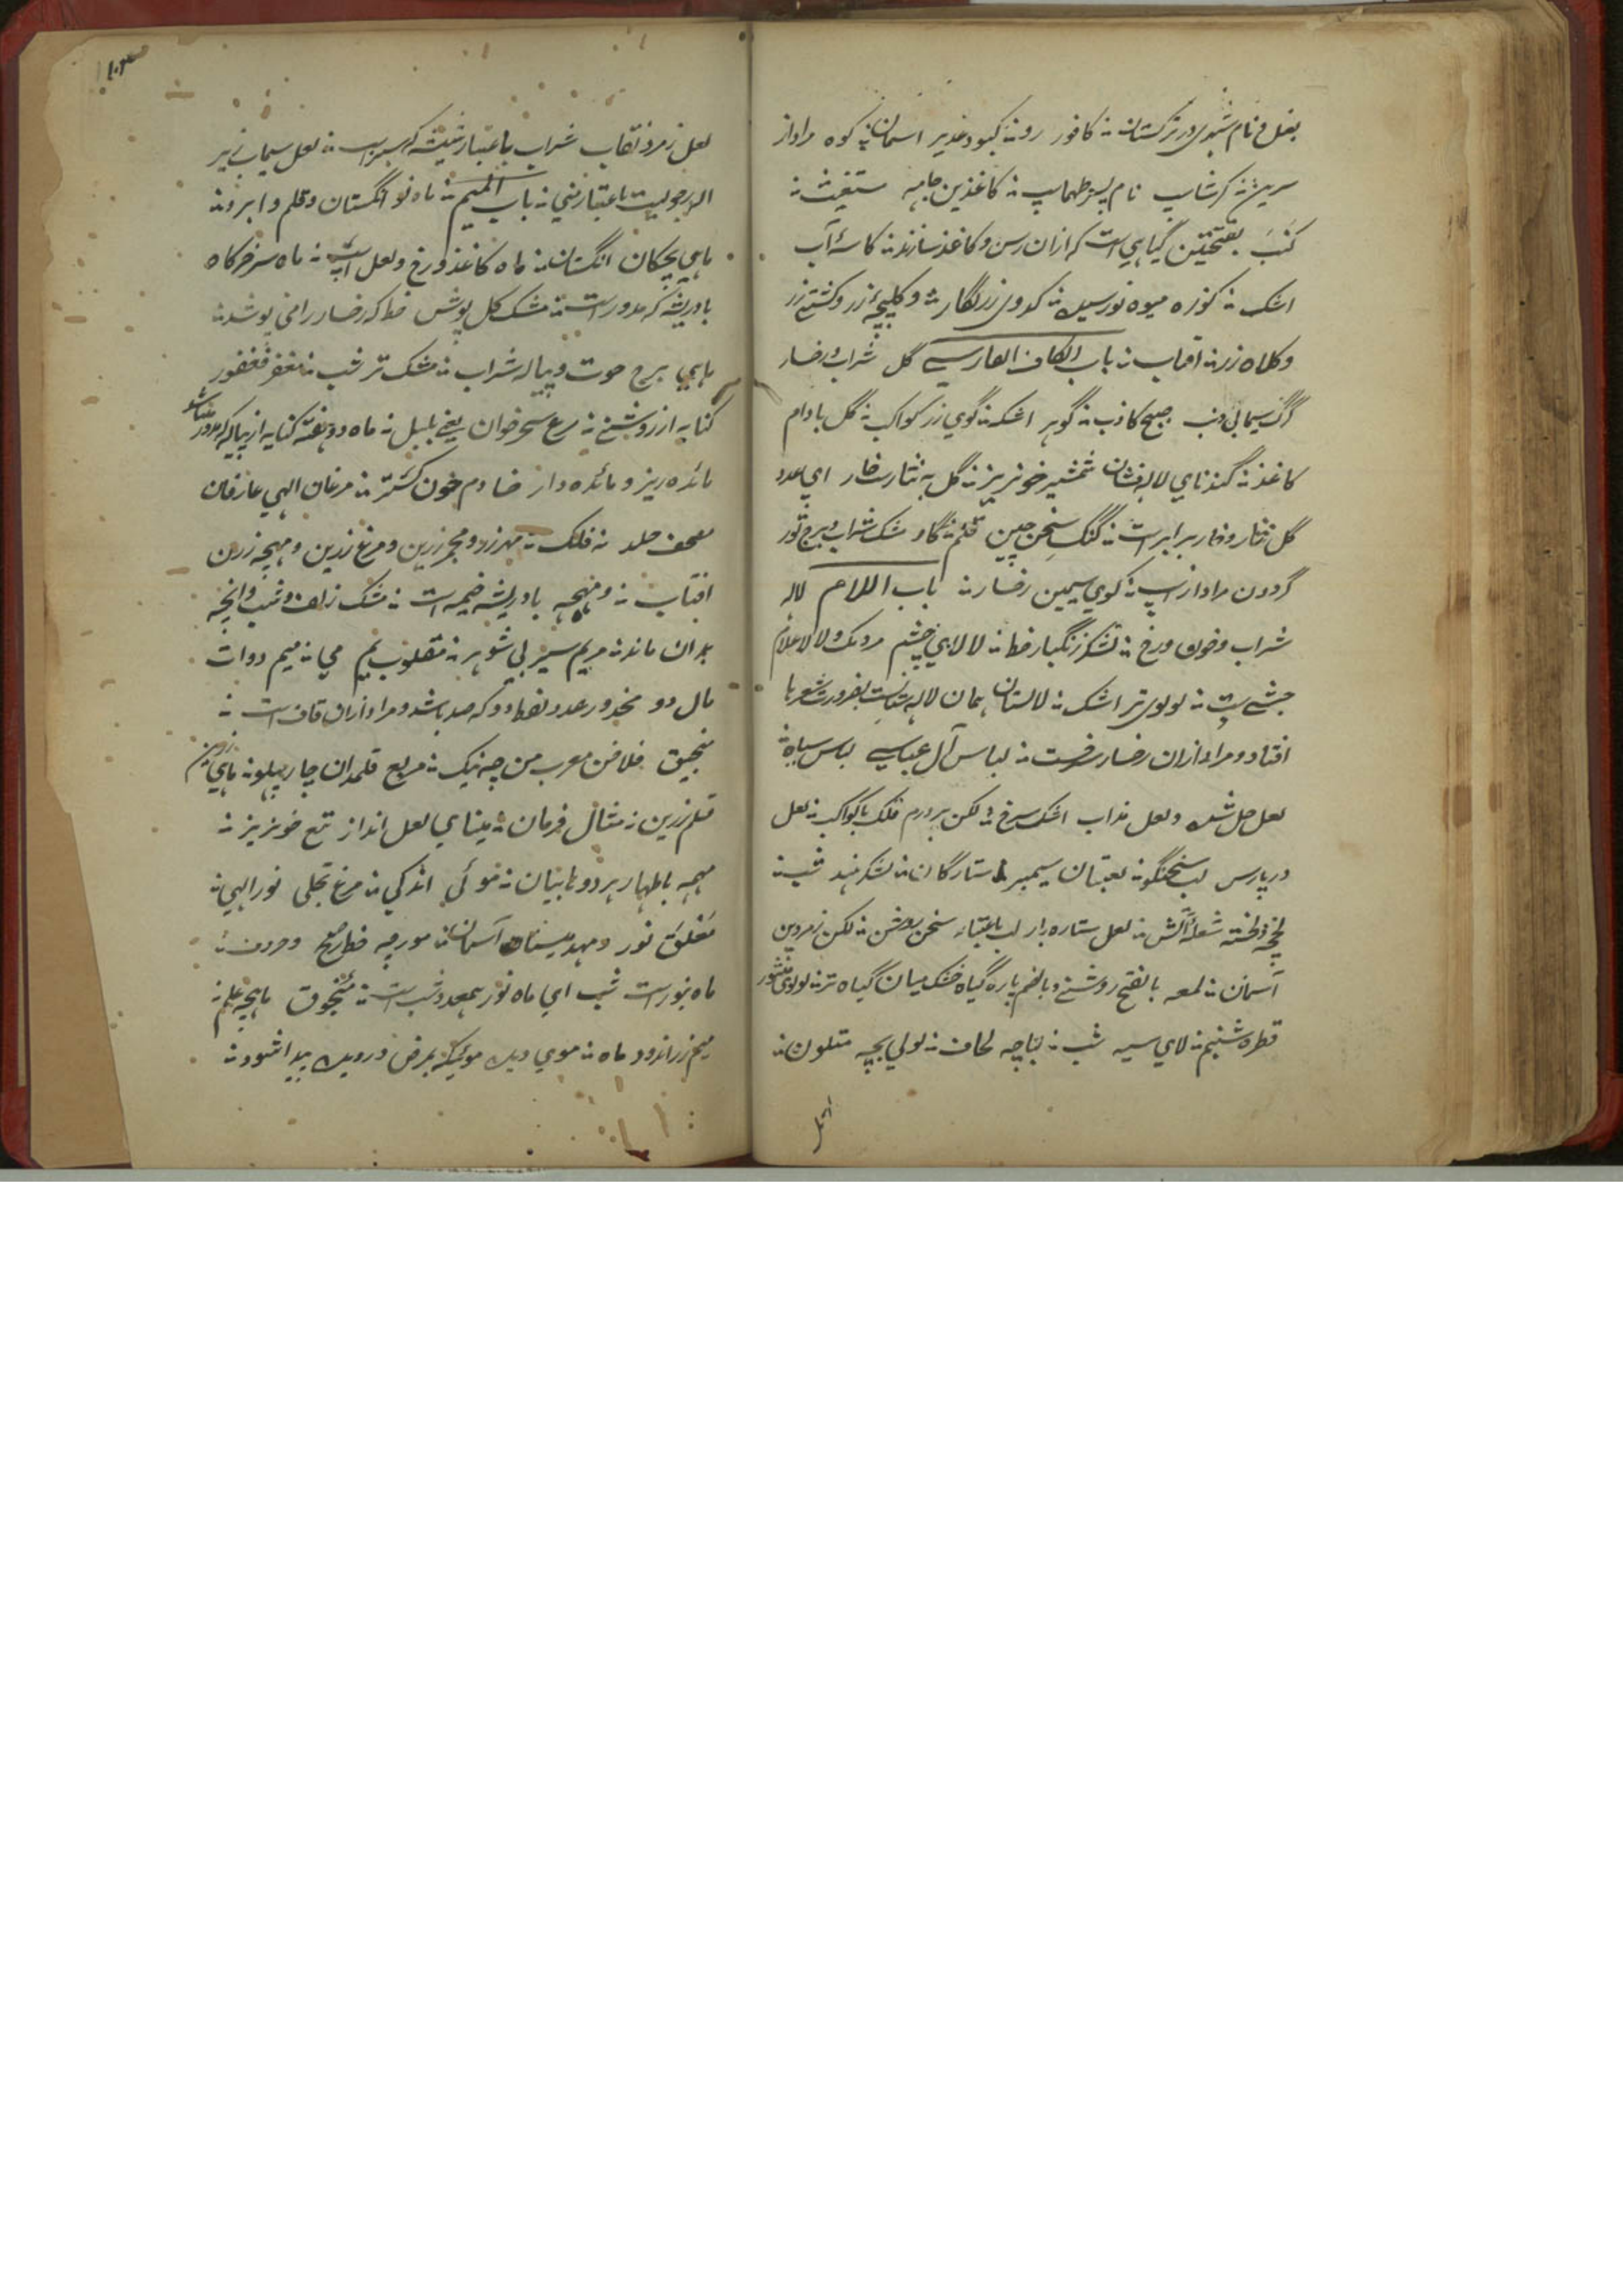 بغل و نام شهری در ترکستان کافور روز کبود غدیر اسمان کوه مراد از
سرین کرشاسپ نام پسر طهماسپ کاغذین جامه ستغیث
کنب بفتحتین گیاهی است که ازان رسن و کاغذ سازند کاسهٔ آب
اشک کوزه میوه نورسیده کدوی زرنگار و کلیچهٔ زر و کشتی زر
و کلاه زر افتاب باب الکاف الفارسی گل شراب و رخسار
گرگ سیمابی دنب صبح کاذب گوهر اشک گوی زر کواکب گل بادام
کاغذ گندنای لاله فشان شمشیر خونریز گل به نثار خار ای عدد
گل نثار و خار برابر است گنگ سخن چین قلم گاو مشک شراب و برج ثور
گردون مراد از اسپ گوی سیمین رخسار باب اللام لاله
شراب و خون و رخ لشکر زنگبار خط لالای چشم مردمک و لالا غلام
حبشی است لولوی تر اشک لالستان همان لاله ستانست بضرورت شعر با
افتاد و مراد ازان رخسار سرخست لباس آل عباسی لباس سیاه
لعل حل شده و لعل مذاب اشک سرخ لکن پر درم فلک با کواکب لعل
در پارس لب سخنگو لعبتان سیمبر ستارگان لشکر هند شب
لخچه و لخشه شعلهٔ آتش لعل ستاره بار لب باعتبار سخن روشن لکن زمردین
آسمان لمعه بالفتح روشنی و بالضم پارهٔ گیاه خشک میان گیاه تر لولوی منثور
قطره شبنم لای سیه شب لباچه لحاف لولی بچه متلون
لعل زمرد نقاب شراب باعتبار شیشه که سبز است لعل سیمابی سر
الهٔ رجولیت باعتبار منی باب المیم ماه نو انگشتان و قلم و ابرو
ماهی بچکان انگشتان ماه کاغذ و رخ و لعل اسپ ماه سر خرگاه
بادریشه که مدور است مشک گل پوش خط که رخسار را می پوشد
ماهی برج حوت و پیاله شراب مشک تر شب مغفر فغفور
کنایه از روشنی مرغ سحرخوان یعنی بلبل ماه دو هفته کنایه از پیاله که مدور باشد
مائده ریز و مائده دار خادم خون گستر مرغان الهی عارفان
مصحف جلد نه فلک مهر زرد و مجمر زرین و مرغ زرین و مهچه زرین
افتاب و مهچه بادریشه خیمه است مشک زلف و شب و انچه
بدان ماند مریم سیر بی شوهر مقلوب یم می میم دوات
مال دو مخدور عدد نود و دو که صد باشد و مراد ازان قاف است
منجنیق فلاخن معرب من چه نیک مربع قلمدان چارپهلو ماهی زرین
قلم زرین مثال فرمان مینای لعل انداز تیغ خونریز
مهمه باظهار هر دو ها بیابان موئی اندکی مرغ تجلی نور الهی
مغلق نور و مهد مینا آسمان مورچه خط و حروف
ماه بنور است شب ای ماه نور بعدد شب است منجوق ماهچه علم
میم زر اندود ماه موی دیده موئیکه بمرض در دیده پیدا شود
لعل
۱۰۳